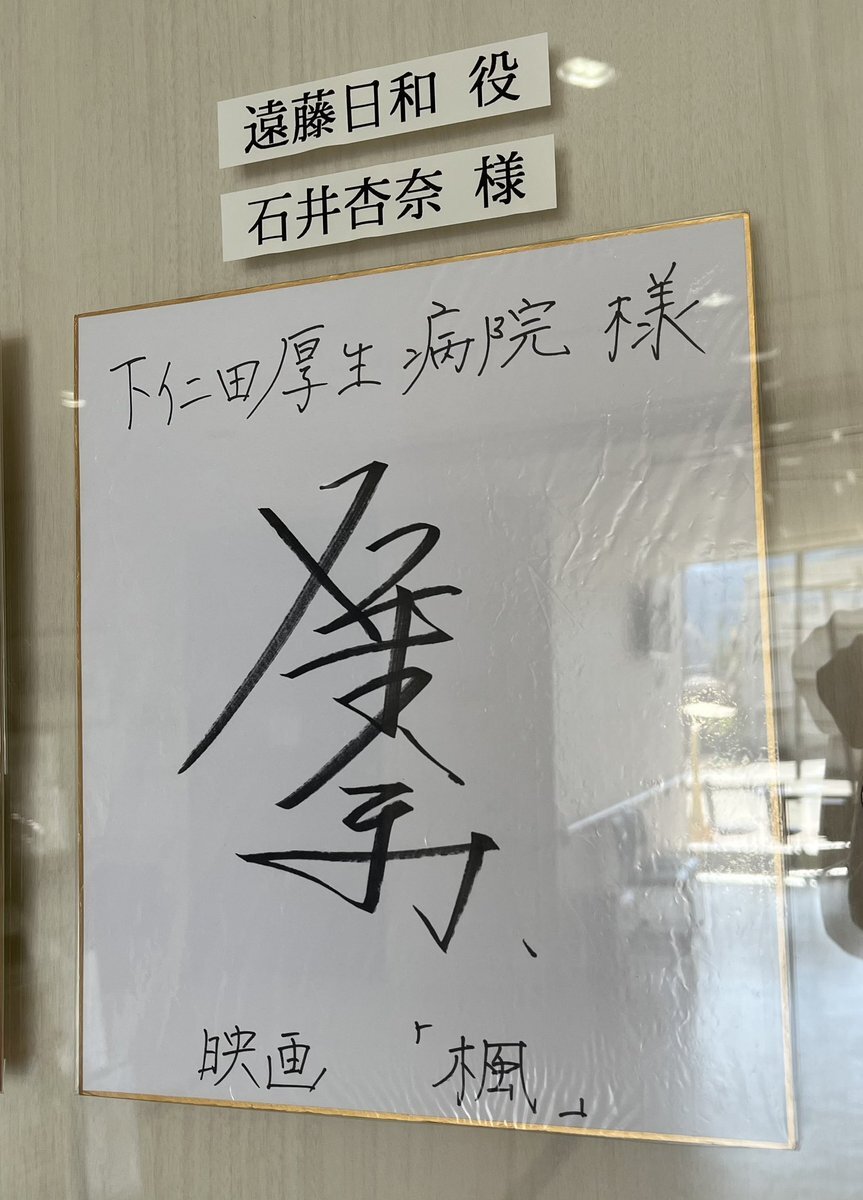 遠藤日和 役
石井杏奈 様
下仁田厚生病院 様
映画 「楓」